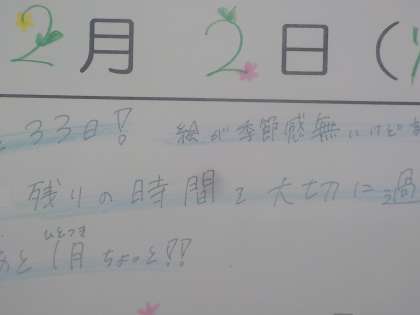 2月 2日(
と33日! 絵が季節感無いけど
残りの時間を大切に過
ひとつき
あと1月ちょっと!!